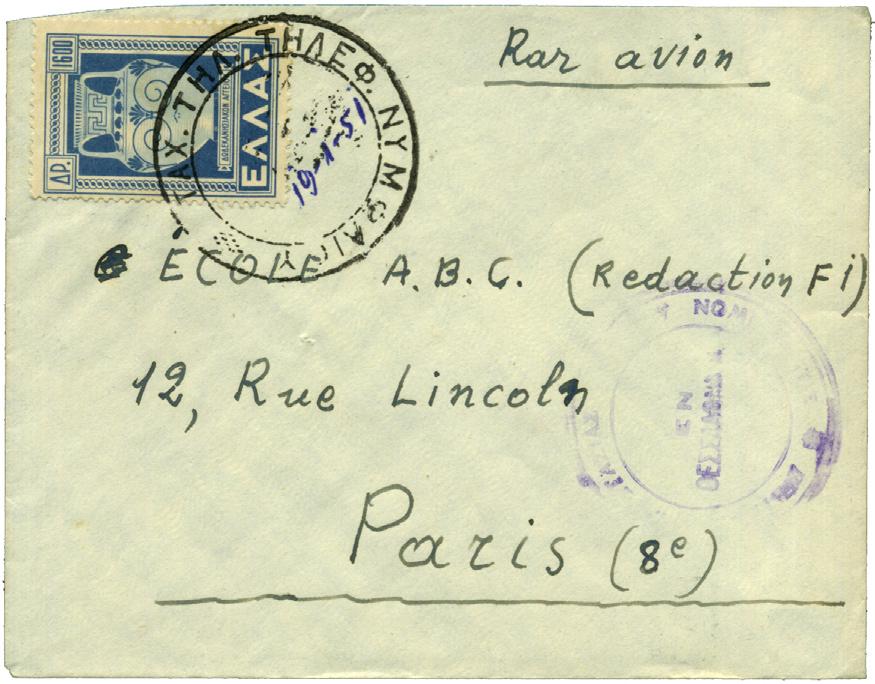 ΔΡ. 1600
ΔΩΔΕΚΑΝΗΣΙΑΚΟΝ ΑΓΓΕΙΟΝ
ΕΛΛΑΣ
ΤΑΧ. ΤΗΛ. ΤΗΛΕΦ. ΝΥΜΦΑΙΟΥ
19-1-51
Par avion
ECOLE A.B.C. (Redaction Fi)
12, Rue Lincoln
Paris (8e)
ΝΟΜ
ΕΝ